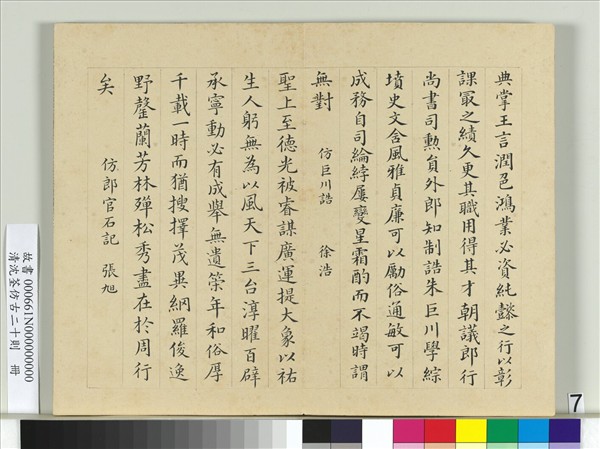 典掌王言潤色鴻業必資純懿之行以彰
課㝡之績久更其職用得其才朝議郎行
尚書司勲員外郎知制誥朱巨川學綜
墳史文含風雅貞廉可以勵俗通敏可以
成務自司綸綍屢變星霜酌而不竭時謂
無對 仿巨川誥 徐浩
聖上至德光被睿謀廣運提大象以祐
生人躬無為以風天下三台淳曜百辟
承寧動必有成舉無遺策年和俗厚
千載一時而猶搜擇茂異網羅俊逸
野罄蘭芳林殫松秀盡在於周行
矣 仿郎官石記 張旭
故書 000661N000000000
清沈荃仿古二十則 冊
7